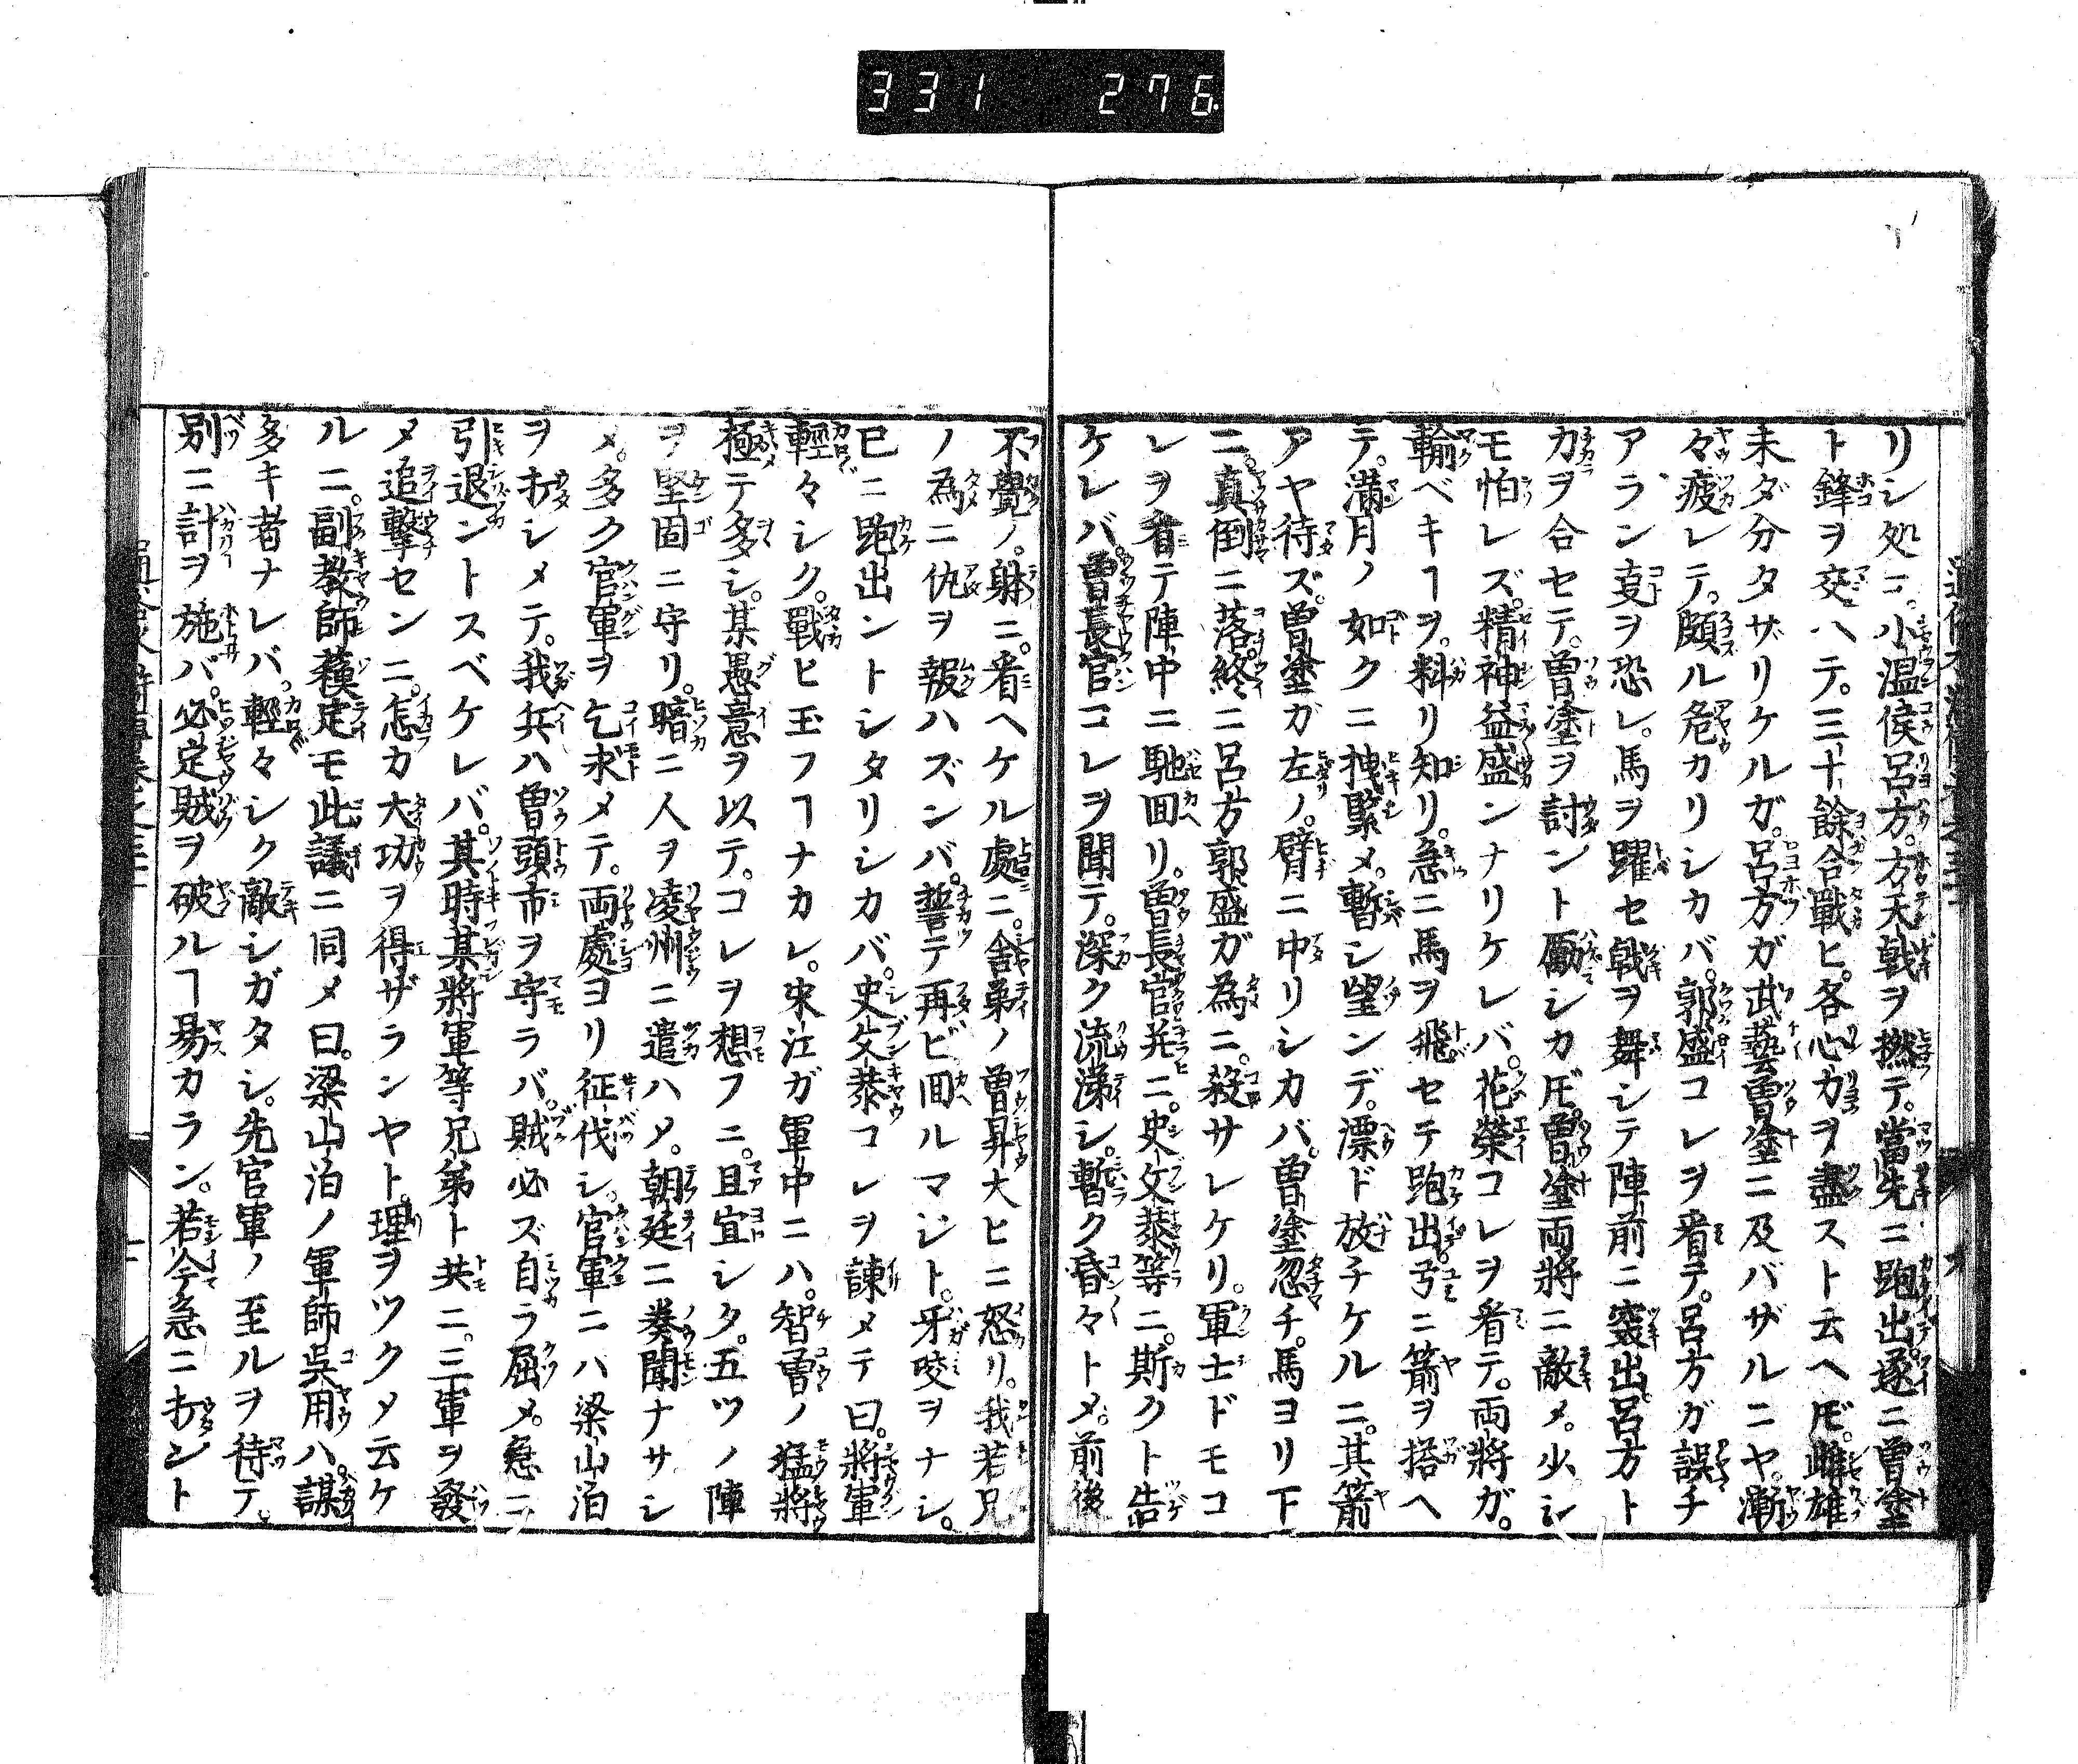 331 276
リシ処ニ。小温侯呂方。方天戟ヲ撚テ。當先ニ跑出。遂ニ曽塗
ト鋒ヲ交ハテ。三十餘合戰ヒ。各心力ヲ盡スト云ヘ𪜈。雌雄
未ダ分タザリケルガ。呂方ガ武藝曽塗ニ及バザルニヤ。漸
々疲レテ。頗ル危カリシカバ。郭盛コレヲ看テ。呂方ガ誤チ
アラン𬼂ヲ恐レ。馬ヲ躍セ戟ヲ舞シテ陣前ニ突出。呂方ト
力ヲ合セテ。曽塗ヲ討ント勵シカ𪜈。曽塗両將ニ敵メ。少シ
モ怕レズ。精神益盛ンナリケレバ。花榮コレヲ看テ。両將ガ。
輸ベキヿヲ。料リ知リ。急ニ馬ヲ飛セテ跑出。弓ニ箭ヲ搭ヘ
テ。滿月ノ如クニ拽緊メ。暫シ望ンデ。漂ド放チケルニ。其箭
アヤ待ズ。曽塗ガ左ノ。臂ニ中リシカバ。曽塗忽チ。馬ヨリ下
ニ。真倒ニ落。終ニ呂方郭盛ガ為ニ。殺サレケリ。軍士ドモコ
レヲ看テ陣中ニ馳回リ。曽長官并ニ。史文恭等ニ。斯クト告
ケレバ。曽長官コレヲ聞テ。深ク流涕シ。暫ク昏々トメ。前後
不覺ノ。躰ニ。看ヘケル處ニ。舎弟ノ曽昇大ヒニ怒リ。我若兄
ノ為ニ仇ヲ報ハズンバ。誓テ再ビ回ルマジト。牙咬ヲナシ。
已ニ跑出ントシタリシカバ。史文恭コレヲ諫メテ曰。將軍
輕々シク。戰ヒ玉フヿナカレ。宋江ガ軍中ニハ。智曽ノ猛將
極テ多シ。某愚意ヲ以テ。コレヲ想フニ。且宜シタ。五ツノ陣
ヲ堅固ニ守リ。暗ニ人ヲ凌州ニ遣ハメ。朝廷ニ奏聞ナサシ
メ。多ク官軍ヲ乞求メテ。両處ヨリ征伐シ。官軍ニハ梁山泊
ヲ打シメテ。我兵ハ曽頭市ヲ守ラバ。賊必ズ自ラ屈メ。急ニ
引退ントスベケレバ。其時某將軍等兄弟ト共ニ。三軍ヲ發
メ追擊センニ。怎カ大功ヲ得ザランヤト。理ヲツクメ云ケ
ルニ。副教師蘓定モ此議ニ同メ曰。梁山泊ノ軍師呉用ハ。謀
多キ者ナレバ。輕々シク敵シガタシ。先官軍ノ至ルヲ待テ。
別ニ計ヲ施バ。必定賊ヲ破ルヿ易カラン。若今急ニ打ント